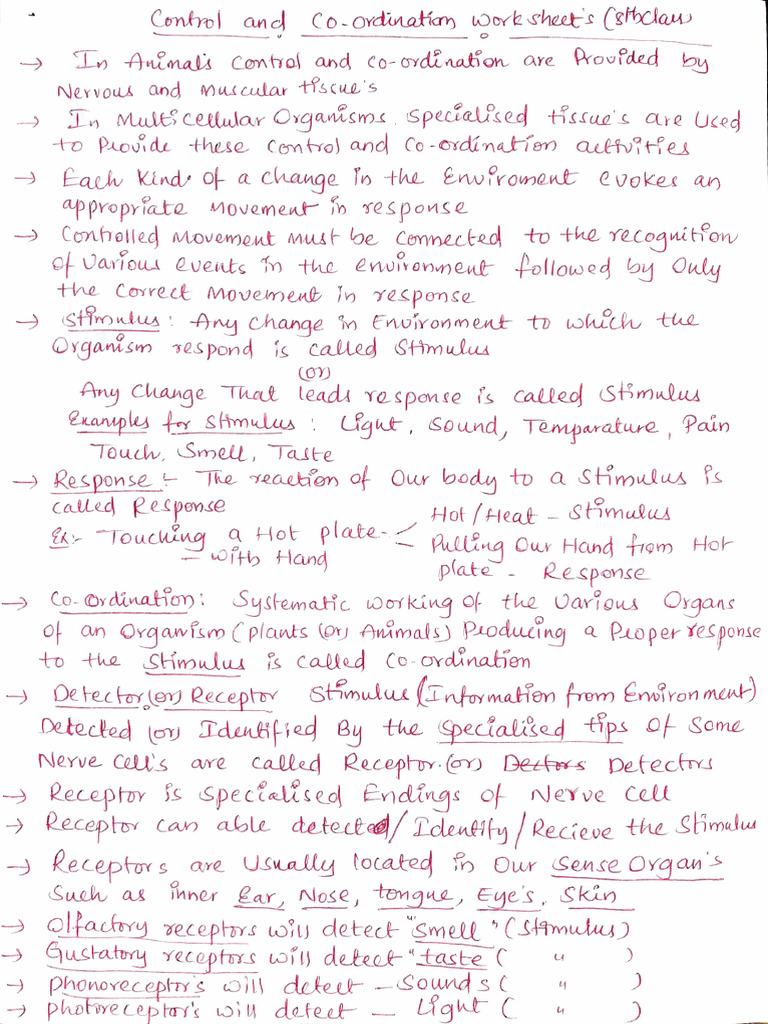 Control and Co-ordination Worksheet's (8thclass
→ In Animal's Control and Co-ordination are Provided by
Nervous and Muscular tissue's
→ In Multicellular Organisms specialised tissue's are Used
to Provide these Control and Co-ordination activities
→ Each Kind of a change in the Enviroment evokes an
appropriate Movement in response
→ Controlled Movement must be Connected to the recognition
of various events in the environment followed by Only
the Correct Movement in response
→ Stimulus : Any Change in Environment to which the
Organism respond is called Stimulus
(or)
Any Change That leads response is called Stimulus
Examples for Stimulus : Light, Sound, Temparature, Pain
Touch, Smell, Taste
→ Response :- The reaction of Our body to a Stimulus is
called Response
Ex:- Touching a Hot plate - Hot/Heat - Stimulus
- with Hand - Pulling Our Hand from Hot
plate - Response
→ Co-Ordination : Systematic working of the Various Organs
of an Organism (plants (or) Animals) Producing a Proper response
to the Stimulus is called Co-ordination
→ Detector (or) Receptor Stimulus (Information from Environment)
Detected (or) Identified By the specialised tips of Some
Nerve Cell's are called Receptor (or) Dectors Detectors
→ Receptor is Specialised Endings of Nerve Cell
→ Receptor can able detected/Identify/Recieve the Stimulus
→ Receptors are Usually located in Our Sense Organ's
Such as inner Ear, Nose, tongue, Eye's, Skin
→ Olfactory receptors will detect "Smell" (Stimulus)
→ Gustatory receptors will detect "taste ( " )
→ phonoreceptor's will detect - Sounds ( " )
→ photoreceptor's will detect - Light ( " )